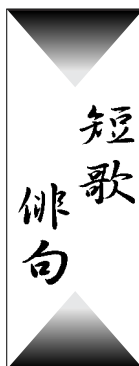 短歌
俳句